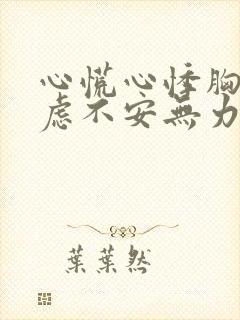 心慌心悸胸
虑不安無力
葉葉然